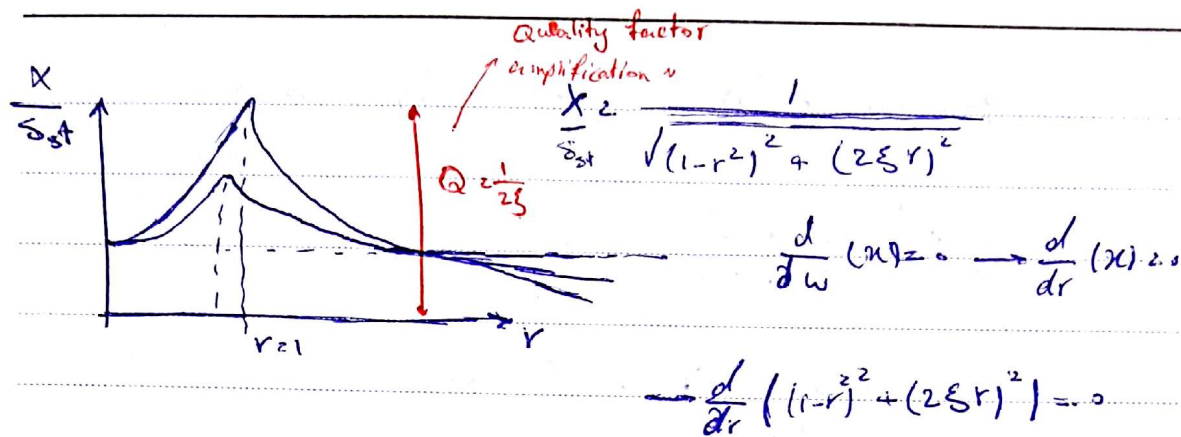 Quality factor
amplification "
X/δst
X/δst = 1/√((1-r²)² + (2ξr)²)
Q = 1/2ξ
d/dω (x) = 0 → d/dr (x) = 0
r=1
r
→ d/dr ((1-r²)² + (2ξr)²) = 0